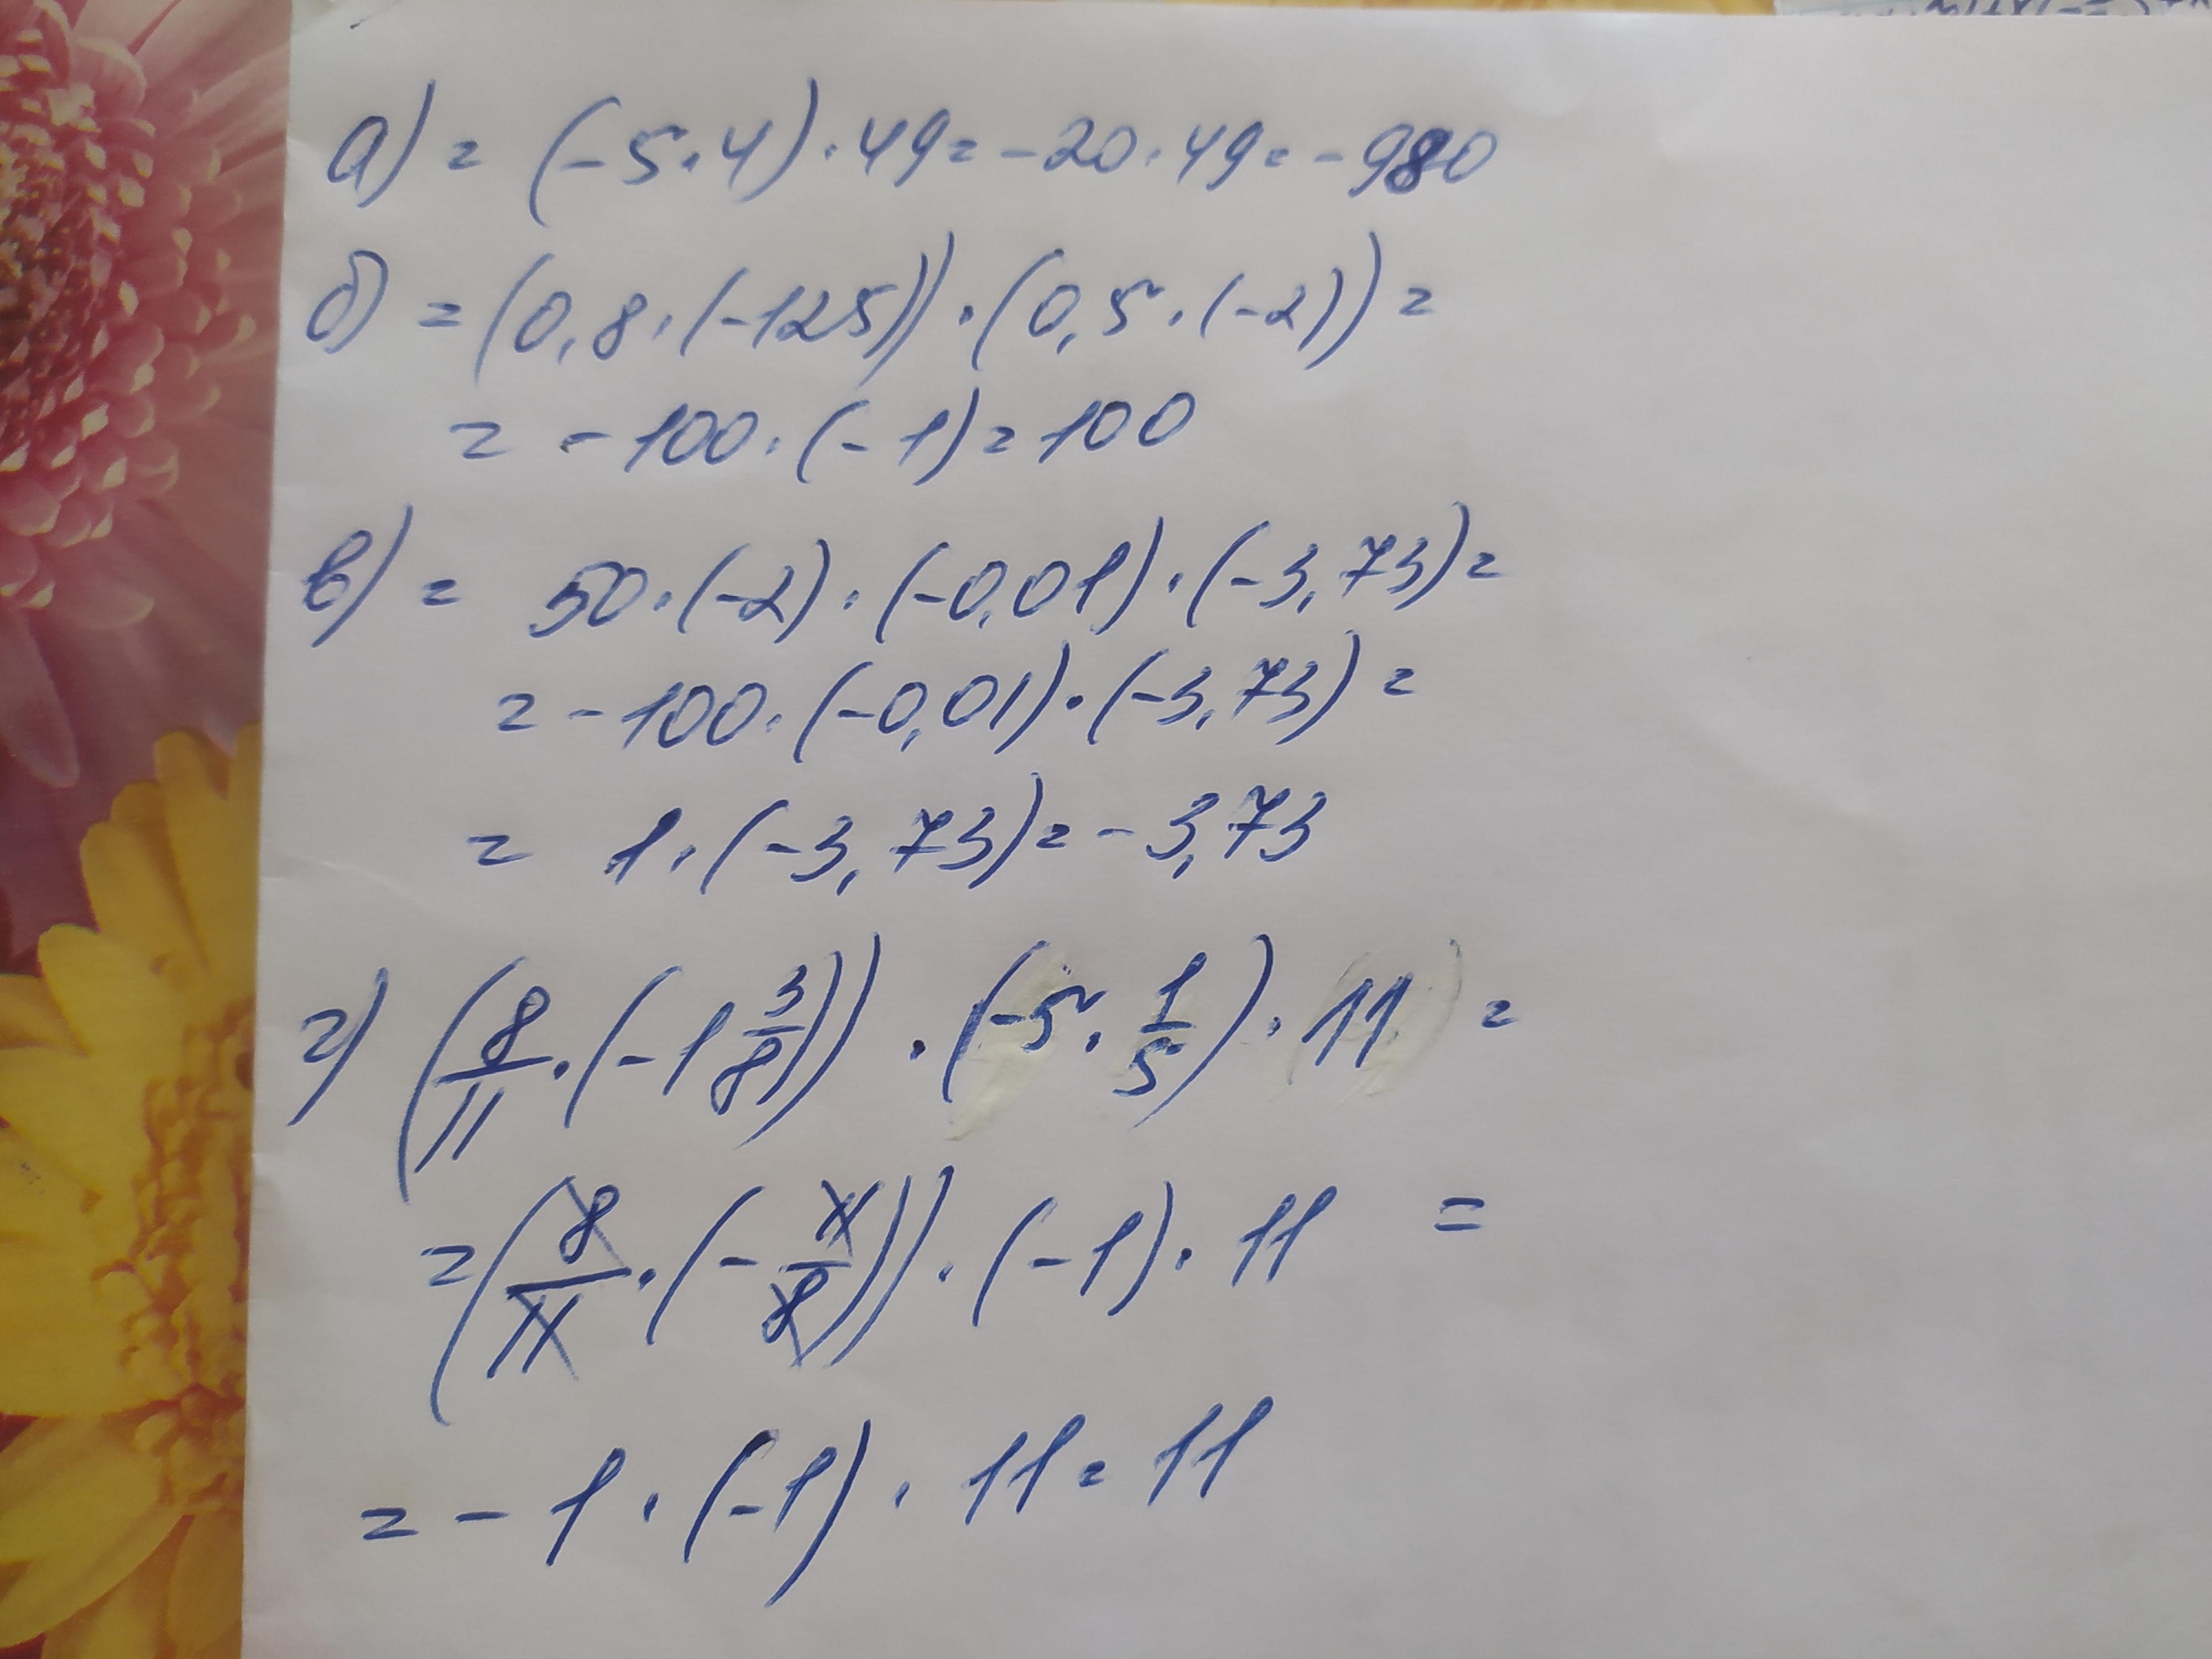 а) = (-5·4)·49=-20·49=-980
б) =(0,8·(-125))·(0,5·(-2))=
= -100·(-1)=100
в) = 50·(-2)·(-0,01)·(-3,73)=
=-100·(-0,01)·(-3,73)=
= 1·(-3,73)=-3,73
г) (8/11·(-1 3/8))·(-5·1/5)·11 =
=(8/11·(-11/8))·(-1)·11 =
=-1·(-1)·11=11